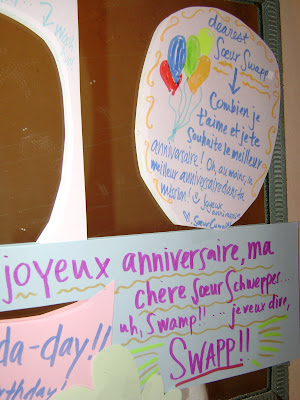 dearest
Sœur Swapp
Combien je
t'aime et je te
souhaite le meilleur
anniversaire! Oh, au moins, le
meilleur anniversaire dans ta
mission! Joyeux
anniversaire
joyeux anniversaire, ma
chere Sœur Schwepper...
uh, Swamp!! ... je veux dire,
SWAPP!!
da-day!!
rthday!